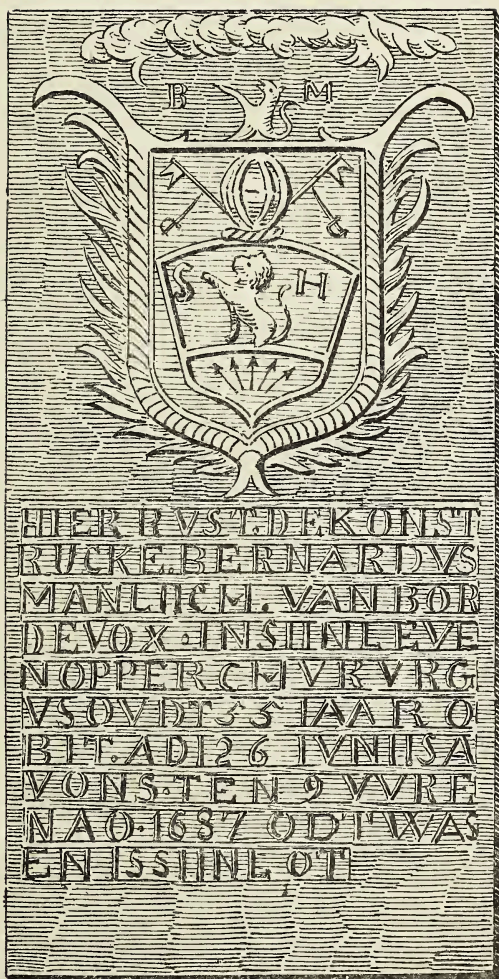 B M
S H
HIER RVST.DE KONST
RUCKE.BERNARDVS
MANLIICH. VAN BOR
DEVOX.INSIINLEVE
NOPPERCHVRVRG
VSOVDT 55 IAARO
BIT.ADI 26 IVNIISA
VONS.TEN 9 VVRE
NAO.1687 ODTWAS
EN ISSIINL OT
1